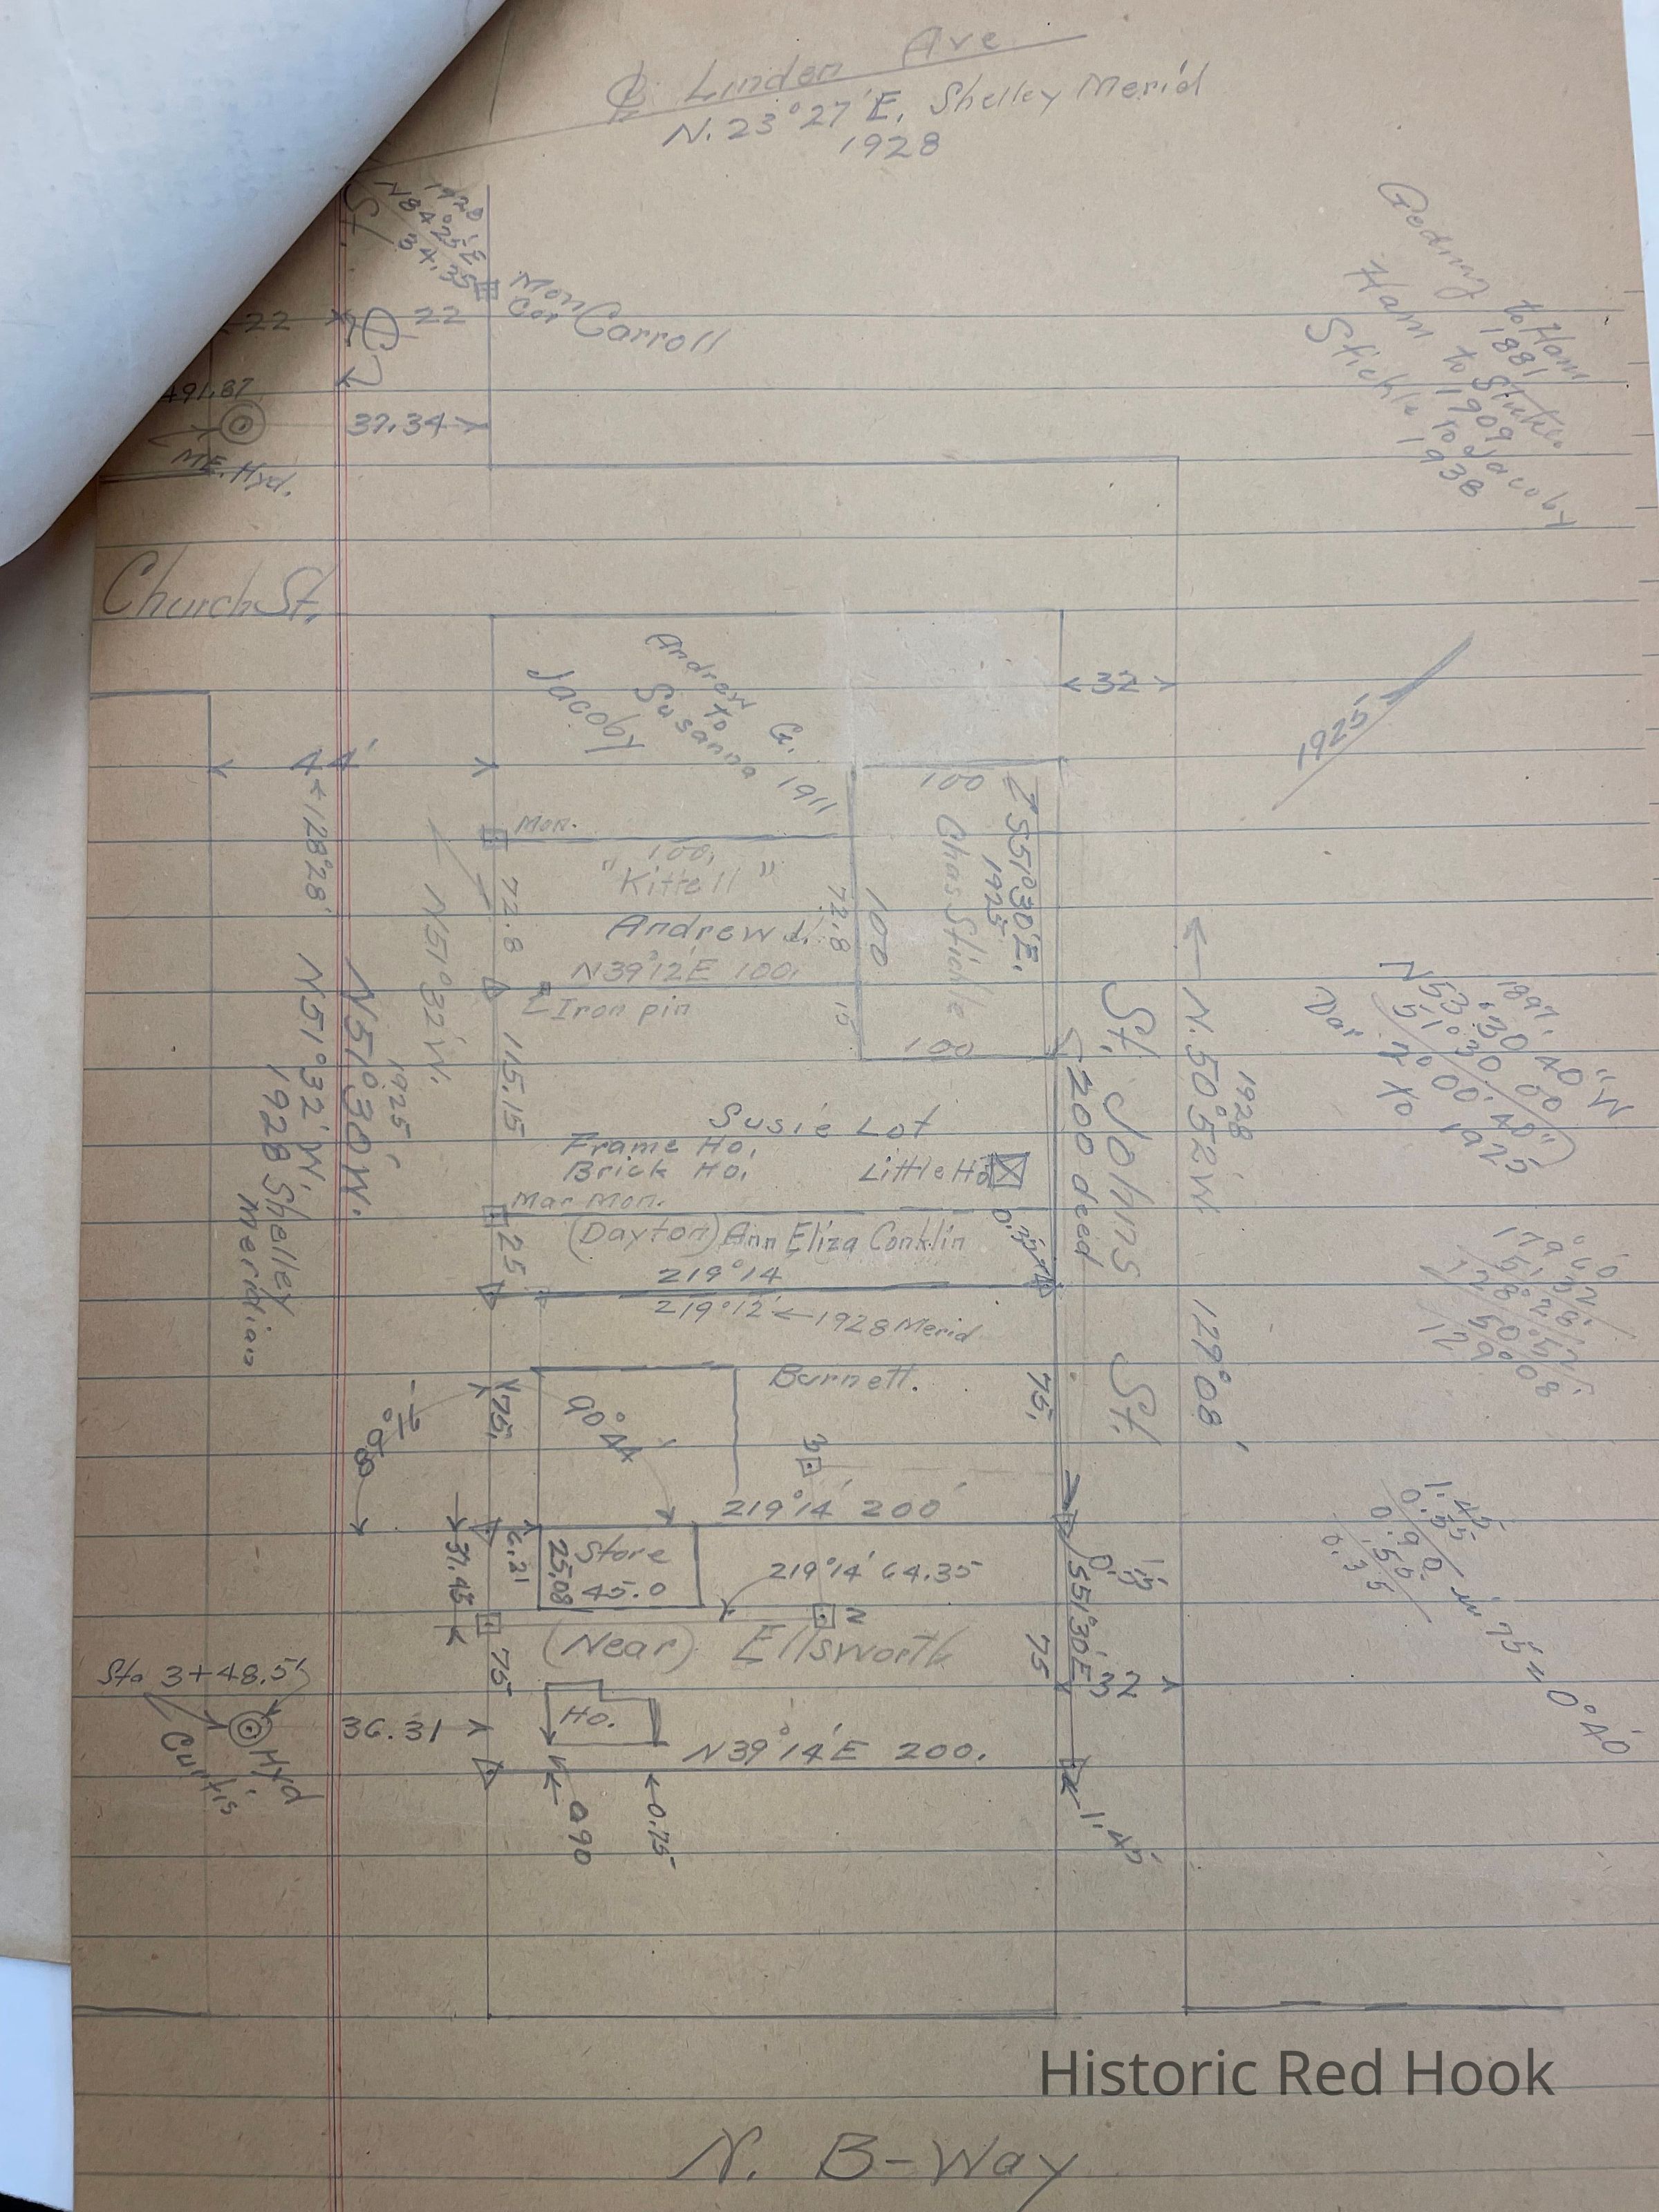 ℄ Linden Ave.
N. 23°27' E. Shelley Merid
1928
St.
1928
N84°25'E
34.35
Mon
Cor
Carroll
22
℄
22
491.87
37.34
ME. Hyd.
Church St.
to Ham
1881
Ham to Stickle
1909
Stickle to Jacoby
1938
Andrew G.
to
Susanna 1911
Jacoby
32
1925
44'
128°28'
Mon.
100.
"Kittell"
72.8
72.8
Andrew J.
N39°12'E 100.
Iron pin
15
100
100
100
Chas Stickle
S51°30'E.
1925
N51°32'W.
N51°30'W.
1925
N51°32'W.
1928 Shelley
Meridian
115.15
Susie Lot
Frame Ho.
Brick Ho.
Little Ho
Mar Mon.
25
(Dayton) Ann Eliza Conklin
219°14'
219°12' ← 1928 Merid
200 deed
St. Johns St.
N. 50°52'W.
1928
129°08'
1897.
Burnett.
75.
75.
90°44'
3
219°14' 200'
Store
45.0
25.08
6.21
31.43
219°14' 64.35
2
(Near) Ellsworth
75
75
S51°30'E
0.55
32
Sta 3+48.5
Curtis
Hyd
36.31
Ho.
N39°14'E 200.
0.90
0.75
1.45
1.45
0.55
0.90 in 75' = 0°40'
.55
0.35
Historic Red Hook
N. B-Way